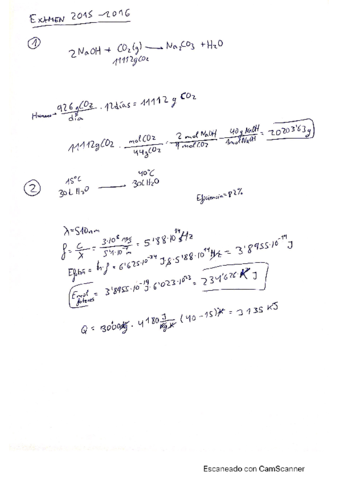 EXAMEN 2015-2016
1
2NaOH + CO2(g) → Na2CO3 + H2O
11112gCO2
Humano → 926gCO2/día · 12días = 11112 g CO2
11112gCO2 · molCO2/44gCO2 · 2 mol NaOH/1 molCO2 · 40g NaOH/1molNaOH = 20203'63g
2
15ºC 40ºC
30L H2O → 30L H2O
Eficiencia=82%
λ=540nm
f = c/λ = 3·10^8 m/s / 5'4·10^-7 m = 5'58·10^14 Hz
Efotón = h·f = 6'625·10^-34 J·s · 5'88·10^14 Hz = 3'8955·10^-19 J
Emol fotones = 3'8955·10^-19 J · 6'023·10^23 = 234626 J
Q = 30 kg · 4180 J/kg·K · (40-15)K = 3135 KJ
Escaneado con CamScanner